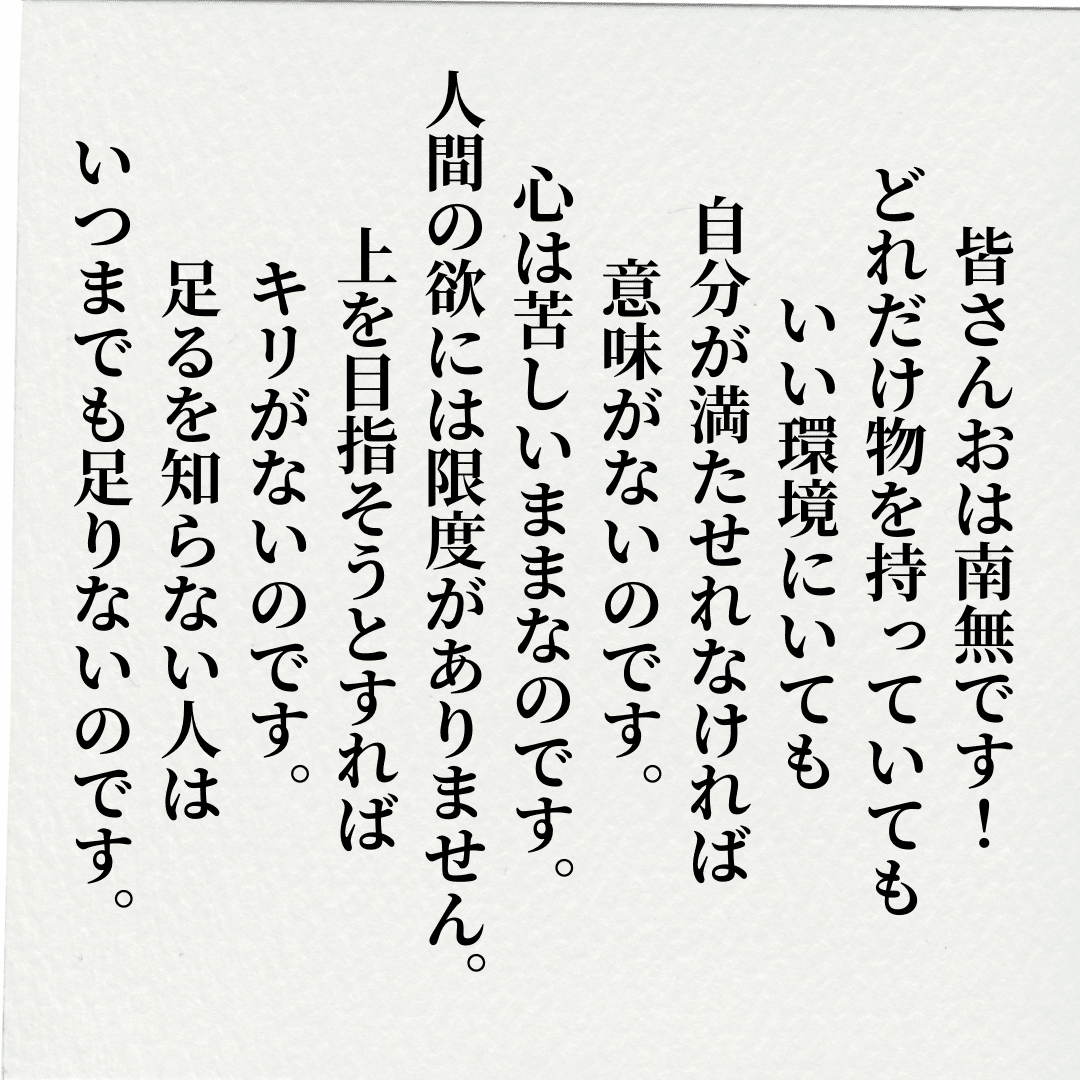 皆さんおは南無です！
どれだけ物を持っていても
いい環境にいても
自分が満たせれなければ
意味がないのです。
心は苦しいままなのです。
人間の欲には限度がありません。
上を目指そうとすれば
キリがないのです。
足るを知らない人は
いつまでも足りないのです。